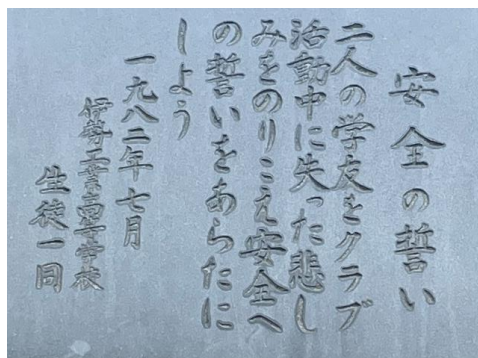 安全の誓い
二人の学友をクラブ
活動中に失った悲し
みをのりこえ安全へ
の誓いをあらたに
しよう
一九八二年七月
伊勢工業高等学校
生徒一同